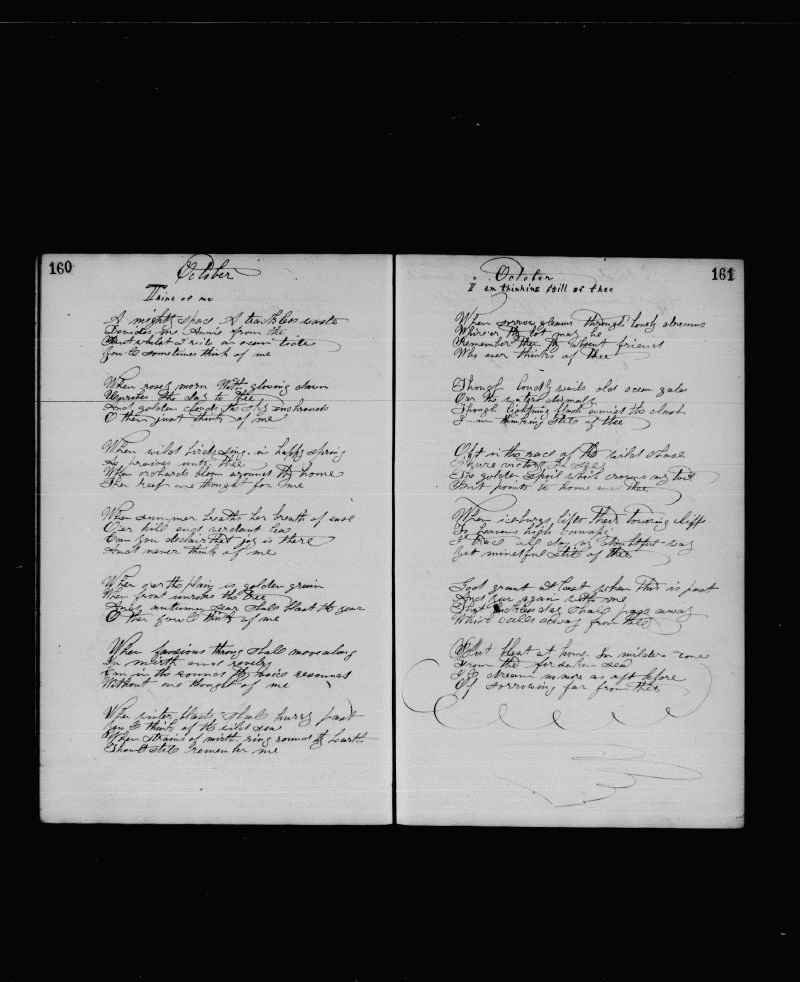 160
October
Think of me
A mighty space A trackless waste
Devides me Annie from the
But whilst I rite on ocean
You'l sometimes think of me
When rosey morn With glowing dawn
the day to thee
And golden clouds the sky enshrouds
O then just think of me
When wild birds sing in happy spring
praises unto thee
When orchards bloom around thy home
Then keep one thought for me
When summer breaths her breath of
O'er hill and verdant lea
Can you declare that joy is there
And never think of me
When earth plain is golden grain
When frost the tree
And autumn sear shall blast the year
O then you'l think of me
When throng shall move along
In mirth and revelry
in the thy voice resounds
Without one thought of me
When winter blasts shall hurry past
You'l think of the wild sea
When strains of mirth ring round thy hearth
Thou'lt still remember me
161
October
I am thinking still of thee
When sorrow gleams through lonely dreams
Where'er thy lot may be
Remember thee thy absent friend
Who ever thinks of thee
Though loudly wails old ocean gales
O'er the waters
Though lightning flash amidst the clash
I am thinking still of thee
Oft in the race of the wild chase
Where victory
The golden spoil which crowns my toil
But points to home and thee
When icebergs lifts their towering cliffs
To heavens high canopy
I trace all day my doubtful way
Yet mindful still of thee
God grant at last when this is past
And you again with me
That day shall pass away
While away from thee
But bleat at home In milder zone
From the forsaken sea
I'l dream no more as oft before
Of sorrowing far from thee